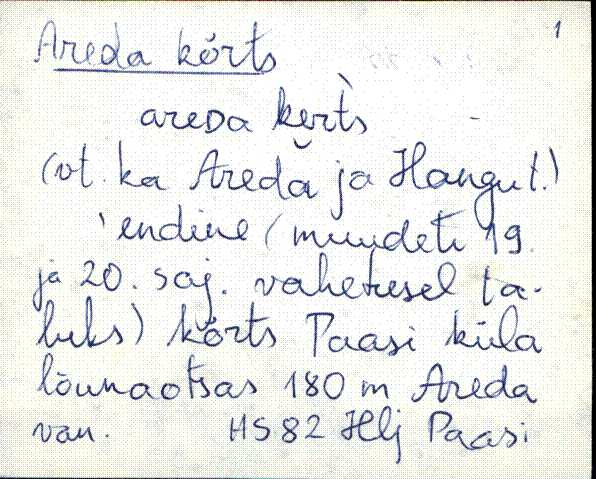 1
Areda kõrts
areda kerts
(vt. ka Areda ja Hangut.)
endine (muudeti 19.
ja 20. saj. vahetusel ta-
luks) kõrts Paasi küla
lõunaotsas 180 m Areda
van. HS 82 Hlj Paasi